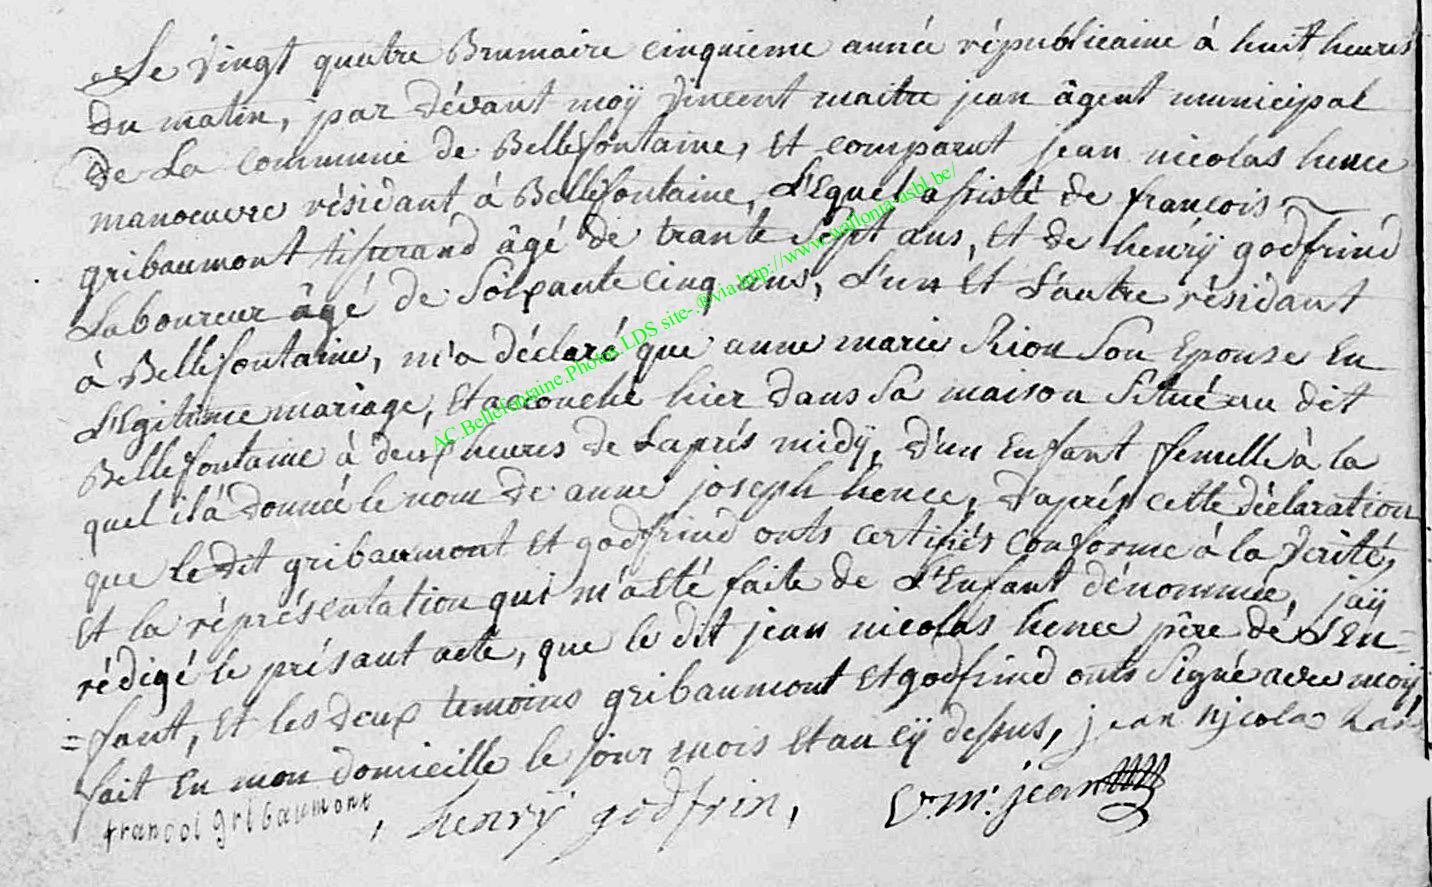 Le vingt quatre Brumaire cinquieme année républicaine à huit heures
du matin, par dévant moÿ vincent maitre jean âgent municipal
de La commune de Bellefontaine, Et comparut jean nicolas hence
manoeuvre résidant à Bellefontaine, L'Equel assisté de francois
gribaumont tisserand âgé de trante Sept ans, Et de henrÿ godfrind
Laboureur âgé de Soixante cinq ans, L'un Et L'autre résidant
à Bellefontaine, m'a déclaré que anne marie Rion Son Epouse En
L'Egitime mariage, Et accouché hier dans Sa maison Situé au dit
Bellefontaine à deux heures de Laprés midÿ, d'un Enfant femelle à la
quel il à donnée le nom de anne joseph hence, d'aprés cette déclaration
que le dit gribaumont Et godfrind onts certifiés conforme à la vérité,
Et la réprésentation qui m'a Eté faite de L'Enfant dénommée, jaÿ
rédigé le présant acte, que le dit jean nicolas hence pére dé L'En=
=fant, Et les deux temoins gribaumont Et godfrind onts Signé avec moÿ,
fait En mon domicille le jour mois Et an cÿ dessus, jean njcolas
francoi gribaumont, henrÿ godfrin, V. m. jean
AC.Bellefontaine.Photos.LDS site-.®via.http://www.wallonia-asbl.be/